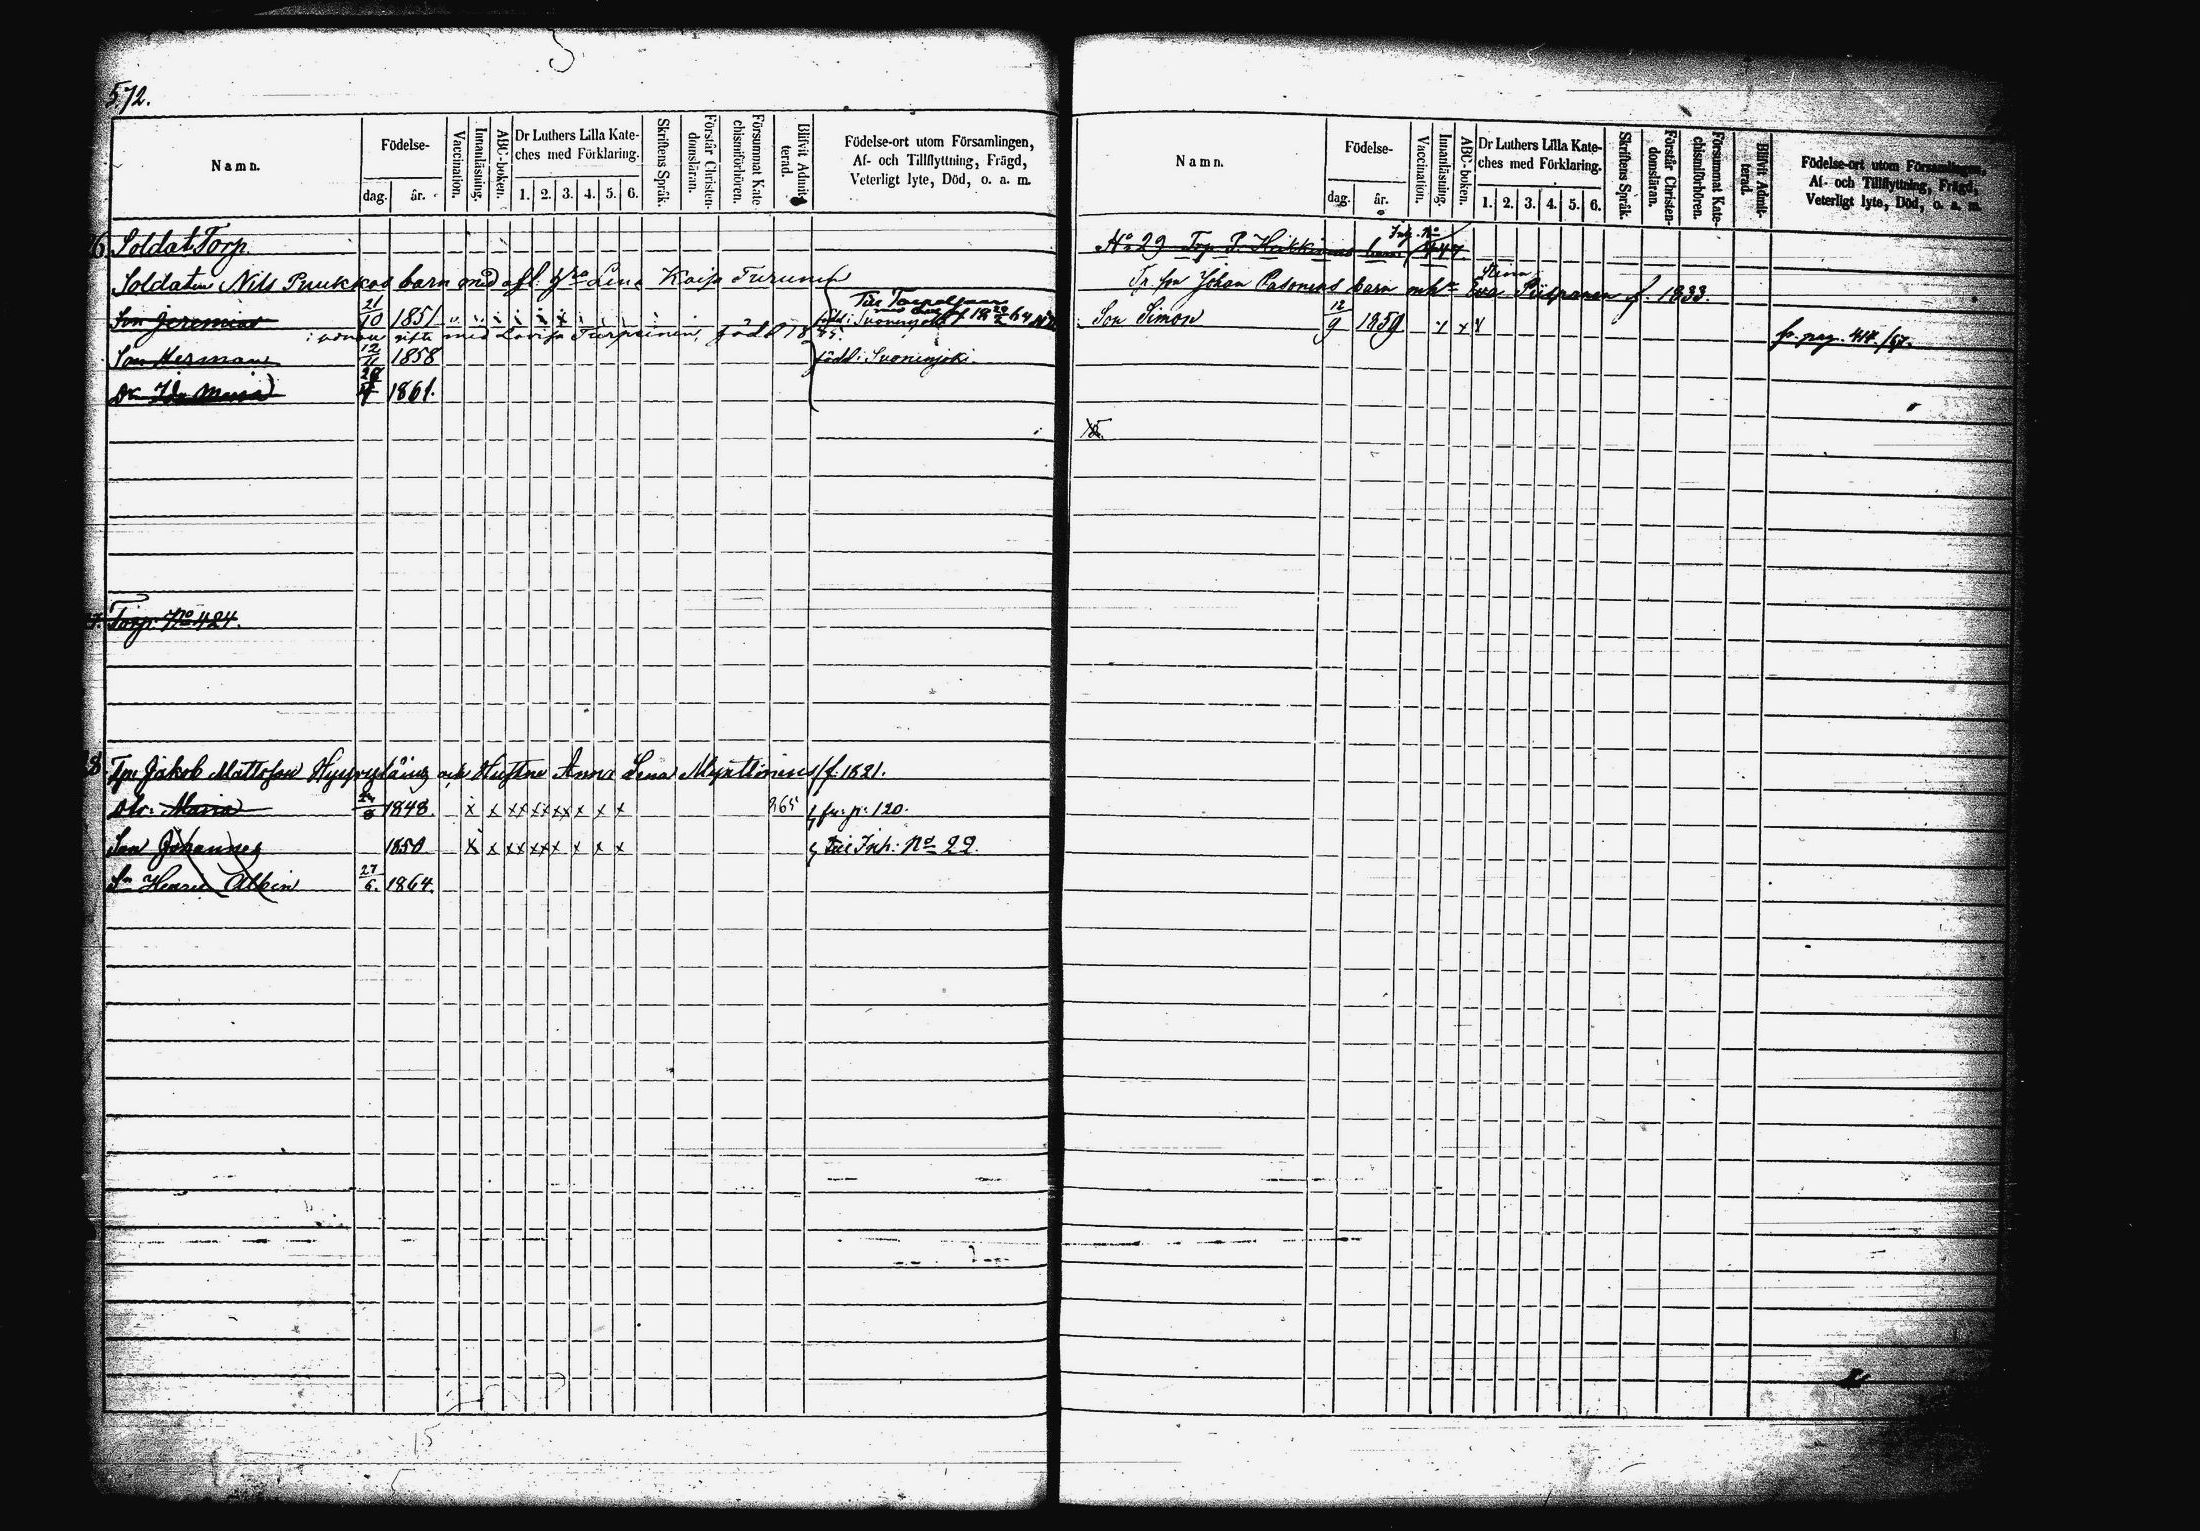 572.
Namn.
Födelse-
dag.
år.
Vaccination.
Innanläsning.
ABC-boken.
Dr Luthers Lilla Kate-
ches med Förklaring.
1. 2. 3. 4. 5. 6.
Skriftens Språk.
Förstår Christen-
domsläran.
Försummat Kate-
chismiförhören.
Blifvit Admit-
terad.
Födelse-ort utom Församlingen,
Af- och Tillflyttning, Frägd,
Veterligt lyte, Död, o. a. m.
6 Soldat Torp.
Soldaten Nils Puukkos barn med afl. Lena Kaisa Turunen
Son Jeremias 21/10 1851
med Lovisa Turpeinen, född
Son Herman 12 1858 född i Suonenjoki.
Dr Ida Maria 1861.
Torp. No 424.
8 Tpr Jakob Mattsson och Hustru Anna Lena f. 1821.
Dtr. Maria 1848. x x xx xx xx x x x 865 fr. p. 120.
Son Johannes 1850 x x xx xx x x x x Till Inh. No 22.
Sn Henric Albin 27/6. 1864.
Namn.
Födelse-
dag.
år.
Vaccination.
Innanläsning.
ABC-boken.
Dr Luthers Lilla Kate-
ches med Förklaring.
1. 2. 3. 4. 5. 6.
Skriftens Språk.
Förstår Christen-
domsläran.
Försummat Kate-
chismiförhören.
Blifvit Admit-
terad.
Födelse-ort utom Församlingen,
Af- och Tillflyttning, Frägd,
Veterligt lyte, Död, o. a. m.
No 29 Trp. P. Heikkinens barn
Johan Pasonens barn Eva f. 1833.
Son Simon 12/9 1859 fr. pag. 418./67.